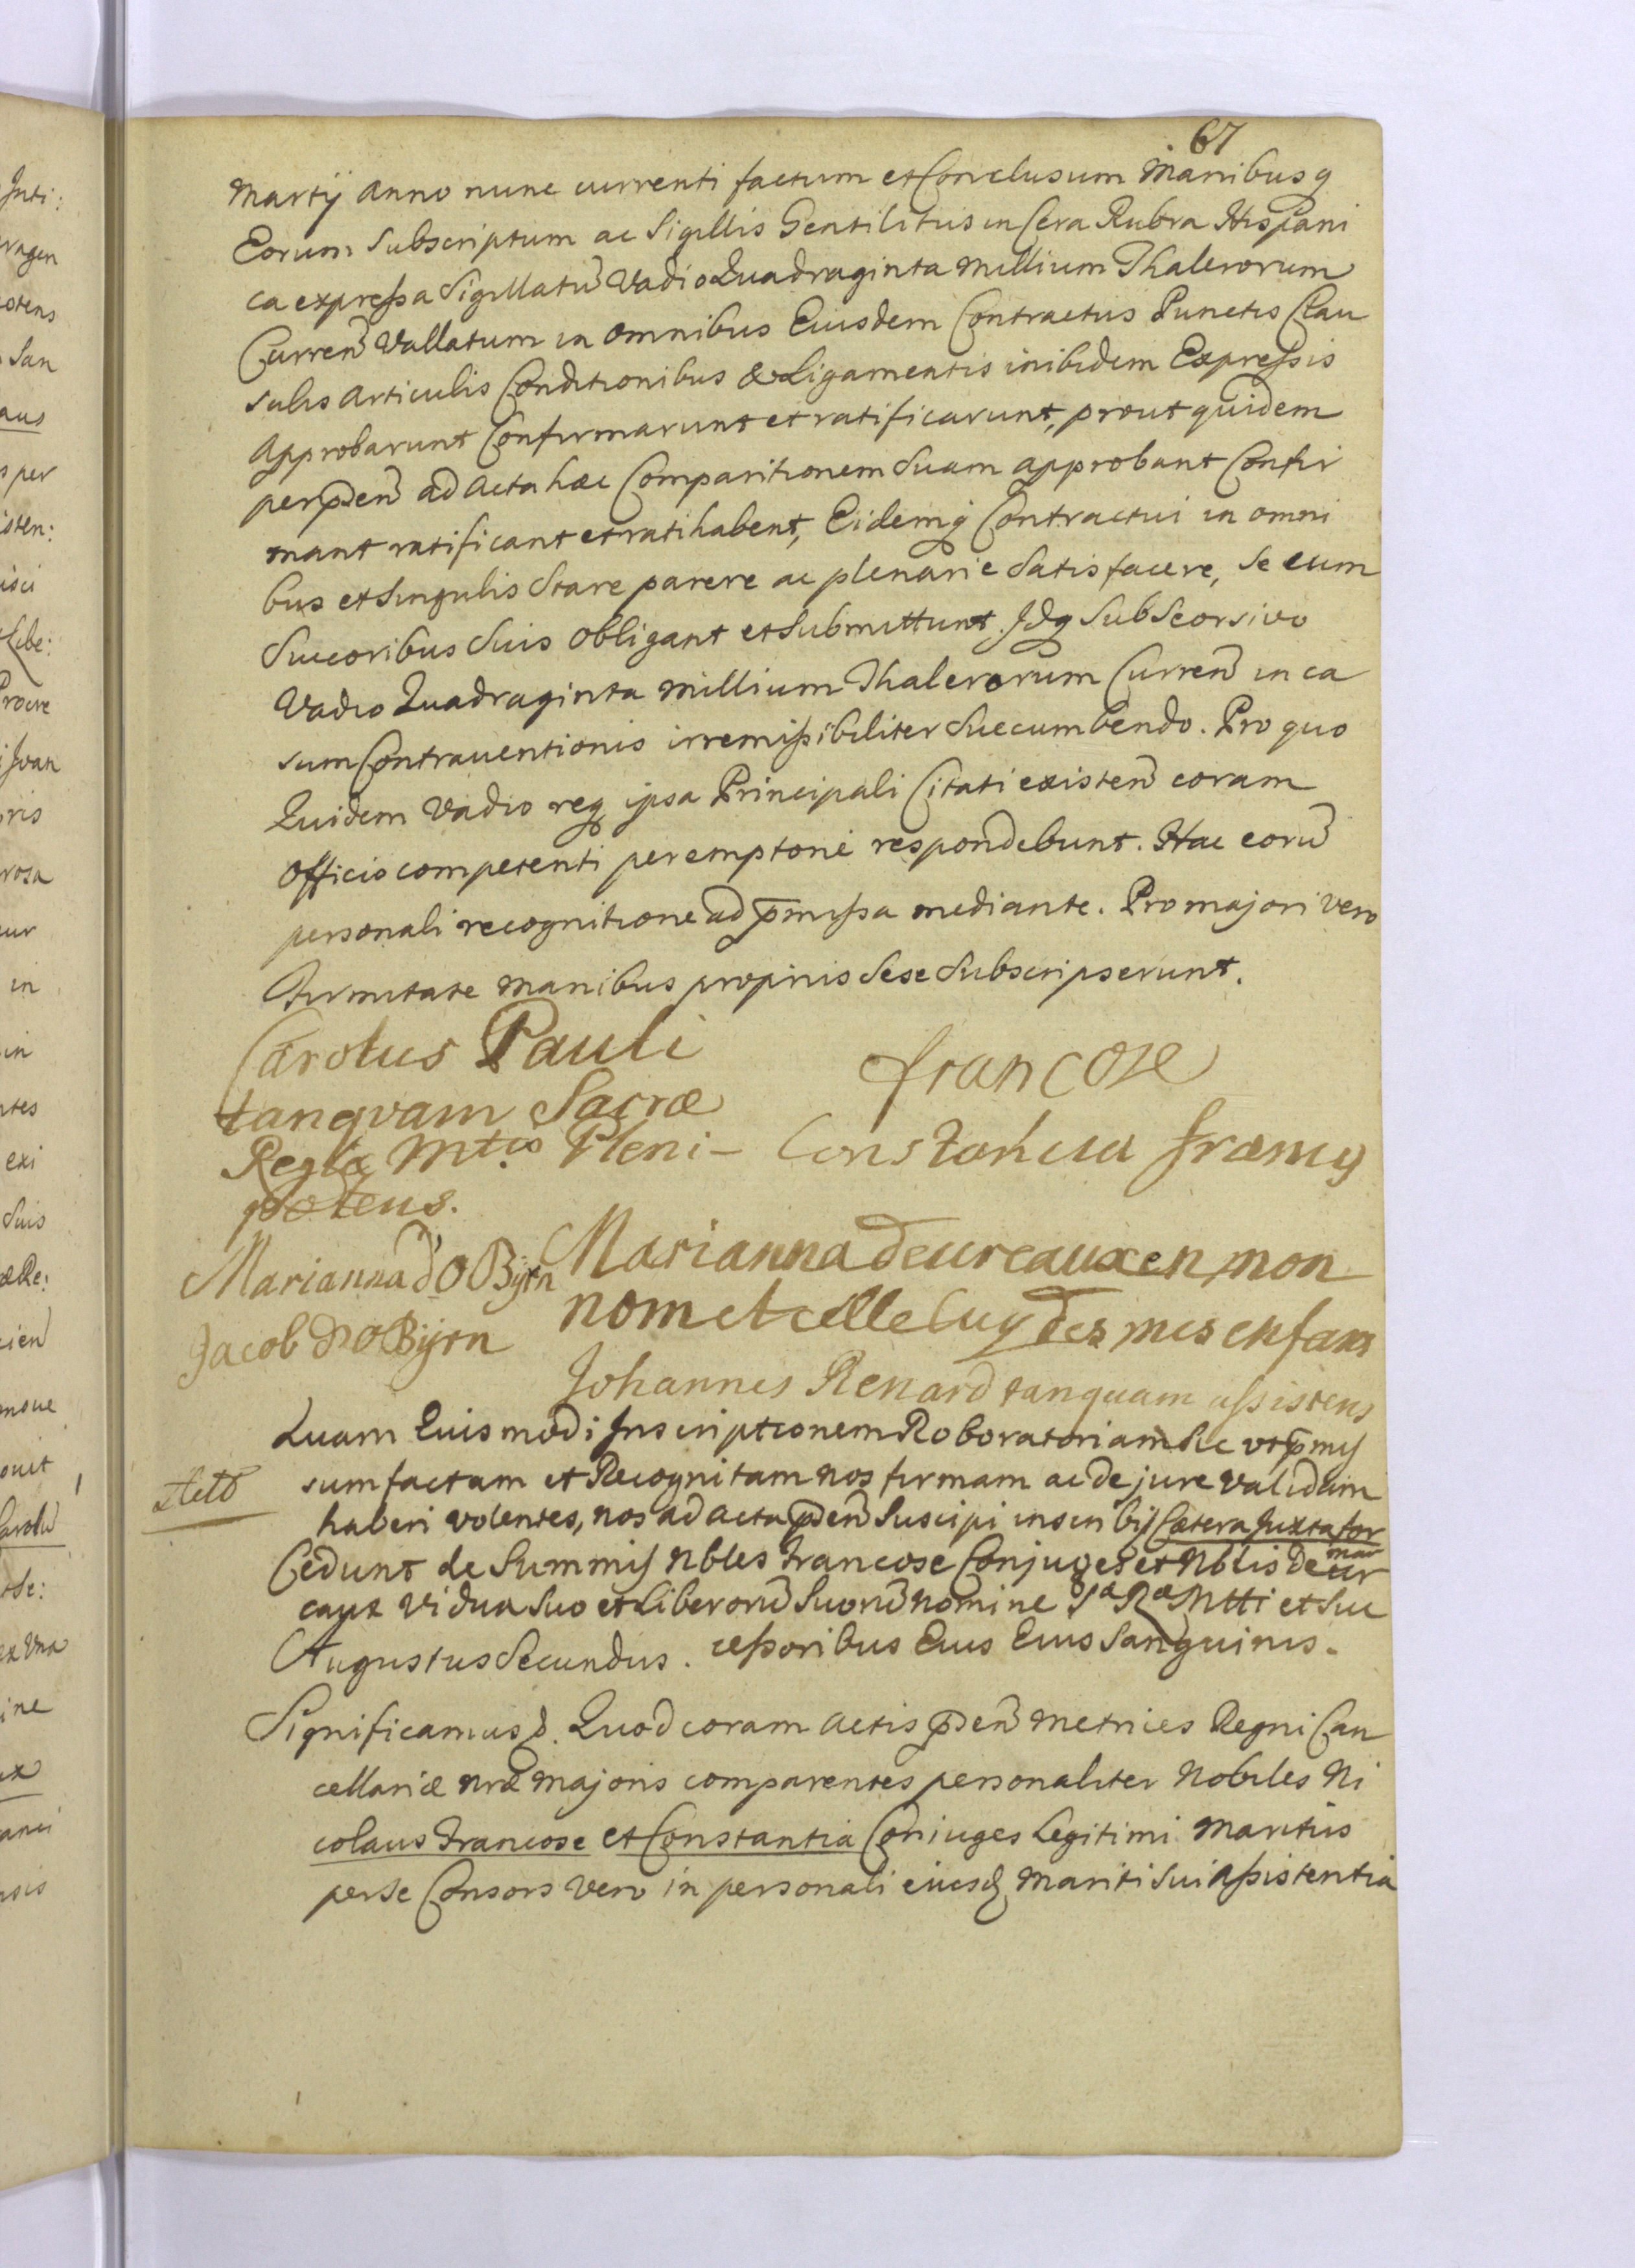 67
Martij Anno nunc currenti factum et Conclusum Manibusq
Eorum Subscriptum ac Sigillis Gentilitus in Cera Rubra Hispani
ca expressa Sigillatu Vadio Quadraginta Millium Thalerorum
Curren Vallatum in omnibus Eiusdem Contractus Punctis Clau
sulis Articulis Conditionibus & Ligamentis inibidem Expressis
Approbarunt Confirmarunt et ratificarunt, prout quidem
per pden ad Acta hac Comparitionem Suam approbant Confir
mant ratificant et ratihabent, Eidemq Contractui in omni
bus et Singulis Stare parere ac plenarie Satisfacere, Se cum
Succoribus Suis obligant et Submittunt. Idq Sub Seorsivo
Vadio Quadraginta Millium Thalerorum Curren in ca
sum Contraventionis irremissibiliter Succumbendo. Pro quo
Quidem Vadio req ipsa Principali Citati existen coram
Officio competenti peremptorie respondebunt. Hac eoru
personali recognitione ad pmissa mediante. Pro majori vero
Firmitate manibus proprijs Sese Subscripserunt.
Carolus Pauli
francose
tanqvam Sacræ
Regiæ Mtis Pleni-
Constancia
potens.
Marianna d'O Bijrn
Marianna deureaux en mon
nom et celle Luy des mes enfans
Jacob d'O Bijrn
Johannes Renard tanquam assistens
Quam Euismodi Inscriptionem Roboratoriam Rc vt pmis
sum factam et Recognitam nos firmam ac de jure validam
haberi volentes, nos ad Acta pden Suscipi inscribij Cætera Juxta for
mam
Cedunt de Summis Nbles Francose Conjuges et Nblis Deur
caux Vidua Suo et Liberoru Suoru nomine Sæ Ræ Mtti et Suc
Augustus Secundus. cessoribus Eius Eius Sanguinis.
Significamus &. Quod coram Actis pden Metrices Regni Can
cellariæ nræ Majoris comparentes personaliter Nobiles Ni
colaus Francose et Constantia Coniuges Legitimi Maritus
per se Consors vero in personali eiusd Mariti Sui Assistentia